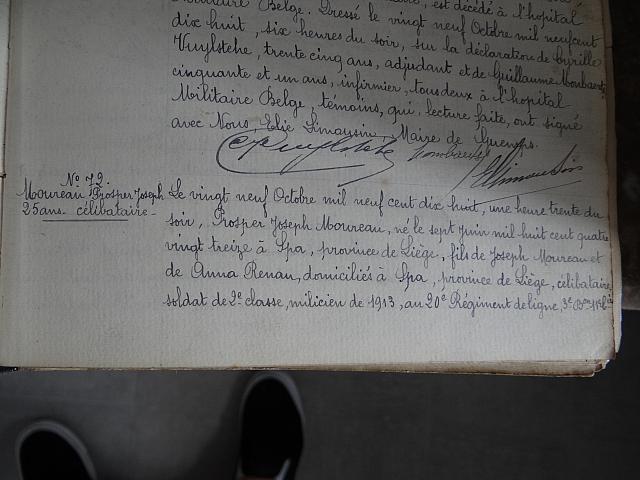 Militaire Belge. Dressé le vingt neuf Octobre mil neufcent
dix huit, six heures du soir, sur la déclaration de Cyrille
Vuylsteke, trente cinq ans, adjudant et de Guillaume Mombaerts
cinquante et un ans, infirmier, tous deux à l'hopital
Militaire Belge, témoins, qui, lecture faite, ont signé
avec Nous, Elie Limousin, Maire de Guemps.
CVuylsteke Mombaerts ELimousin
No 72.
Moureau Prosper Joseph
25 ans. célibataire -
Le vingt neuf Octobre mil neuf cent dix huit, une heure trente du
soir, Prosper Joseph Moureau, né le sept Juin mil huit cent quatre
vingt treize à Spa, province de Liège, fils de Joseph Moureau et
de Anna Renan, domiciliés à Spa, province de Liège, célibataire,
soldat de 2e classe, milicien de 1913, au 20e Régiment de ligne, 3e